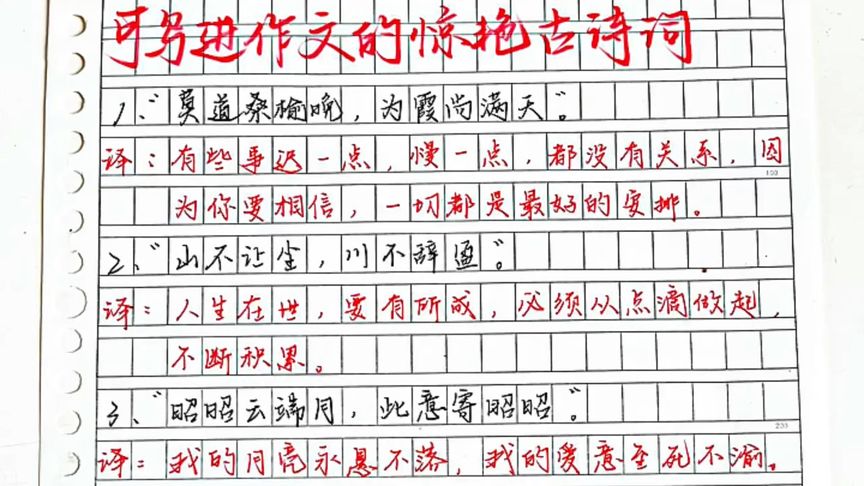 可写进作文的惊艳古诗词
1、“莫道桑榆晚，为霞尚满天”。
译：有些事迟一点，慢一点，都没有关系，因
100
为你要相信，一切都是最好的安排。
2、“山不让尘，川不辞盈”。
译：人生在世，要有所成，必须从点滴做起，
不断积累。
3、“昭昭云端月，此意寄昭昭”。
200
译：我的月亮永悬不落，我的爱意至死不渝。